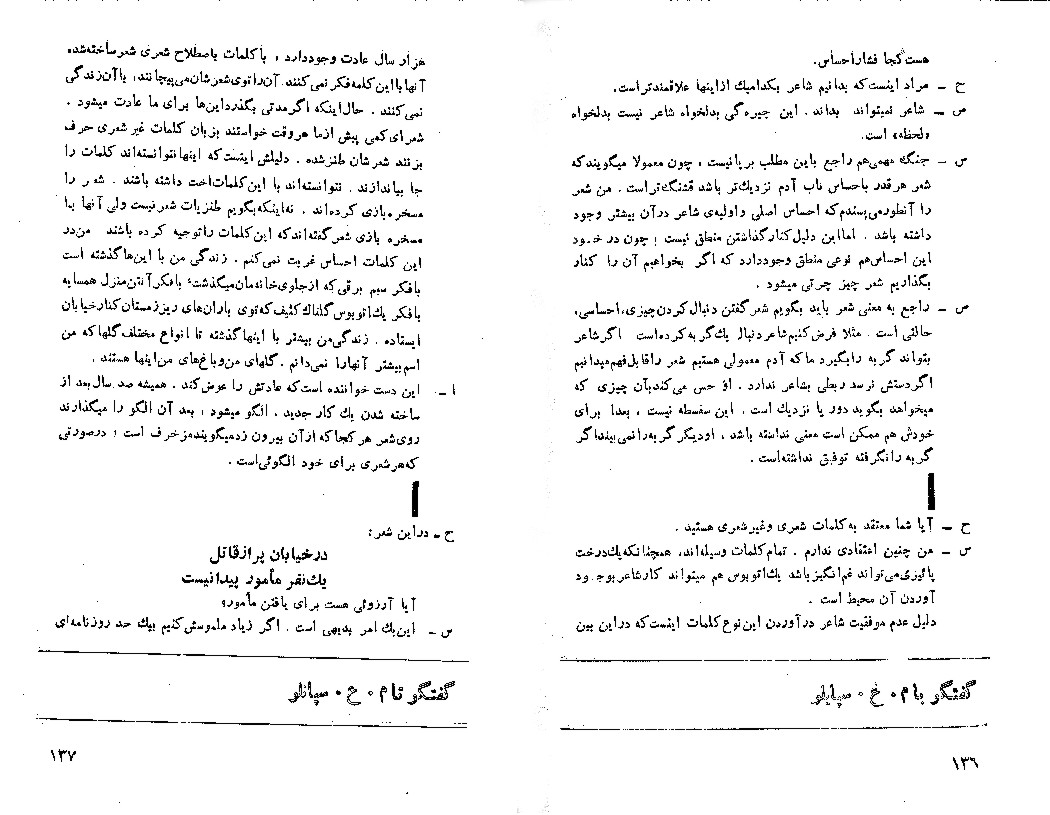 هست کجا فشار احساس.
ح ـ مراد اینست که بدانیم شاعر بکدامیک از اینها علاقمندتر است.
س ـ شاعر نمیتواند بداند . این چیره گی بدلخواه شاعر نیست بدلخواه
«لحظه» است.
س ـ جنگ مهمی هم راجع باین مطلب برپا نیست ، چون معمولا میگویند که
شعر هرقدر باحساس ناب آدم نزدیک تر باشد قشنگ تر است . من شعر
را آنطور می پسندم که احساس اصلی و اولیه ی شاعر در آن بیشتر وجود
داشته باشد . اما این دلیل کنار گذاشتن منطق نیست ؛ چون در خود
این احساس هم نوعی منطق وجود دارد که اگر بخواهیم آن را کنار
بگذاریم شعر چیز چرتی میشود .
س ـ راجع به معنی شعر باید بگویم شعر گفتن دنبال کردن چیزی، احساسی،
حالتی است . مثلا فرض کنیم شاعر دنبال یک گربه کرده است اگر شاعر
بتواند گربه را بگیرد ما که آدم معمولی هستیم شعر را قابل فهم میدانیم
اگر دستش نرسد ربطی بشاعر ندارد . او حس می کند بآن چیزی که
میخواهد بگوید دور یا نزدیک است . این سفسطه نیست ، بعدا برای
خودش هم ممکن است معنی نداشته باشد ، او دیگر گربه را نمی بیند اگر
گربه را نگرفته توفیق نداشته است .
ح ـ آیا شما معتقد به کلمات شعری و غیر شعری هستید .
س ـ من چنین اعتقادی ندارم . تمام کلمات وسیله اند، همچنانکه یک درخت
پائیزی می تواند غم انگیز باشد یک اتوبوس هم میتواند کار شاعر بوجود
آوردن آن محیط است .
دلیل عدم موفقیت شاعر در آوردن این نوع کلمات اینست که در این بین
گفتگو با م . خ . سپانلو
۱۳۶
هزار سال عادت وجود دارد ، با کلمات باصطلاح شعری شعر ساخته شده
آنها با این کلمه فکر نمی کنند. آن را توی شعرشان می پیچانند، با آن زندگی
نمی کنند . حال اینکه اگر مدتی بگذرد این ها برای ما عادت میشود .
شعرای کمی پیش از ما هر وقت خواستند بزبان کلمات غیر شعری حرف
بزنند شعرشان طنز شده . دلیلش اینست که اینها نتوانسته اند کلمات را
جا بیاندازند . نتوانسته اند با این کلمات اخت داشته باشند . شعر را
مسخره بازی کرده اند . نه اینکه بگویم طنزیات شعر نیست ولی آنها با
مسخره بازی شعر گفته اند که این کلمات را توجیه کرده باشند من در
این کلمات احساس غربت نمی کنم . زندگی من با این ها گذشته است
با فکر سیم برقی که از جلوی خانه مان میگذشت؛ با فکر آنتن منزل همسایه
با فکر یک اتوبوس گلناک کثیف که توی باران های ریز زمستان کنار خیابان
ایستاده . زندگی من بیشتر با اینها گذشته تا انواع مختلف گلها که من
اسم بیشتر آنها را نمی دانم . گلهای من و باغ های من اینها هستند .
ا ـ این دست خواننده است که عادتش را عوض کند . همیشه صد سال بعد از
ساخته شدن یک کار جدید ، الگو میشود ، بعد آن الگو را میگذارند
روی شعر هر کجا که از آن بیرون زد میگویند مزخرف است ؛ در صورتی
که هر شعری برای خود الگوئی است .
ح ـ در این شعر:
در خیابان پر از قاتل
یک نفر مأمور پیدا نیست
آیا آرزوئی هست برای یافتن مأمور؟
س ـ این یک امر بدیهی است . اگر زیاد ملموسش کنیم بیک حد روزنامه ای
گفتگو با م . خ . سپانلو
۱۳۷